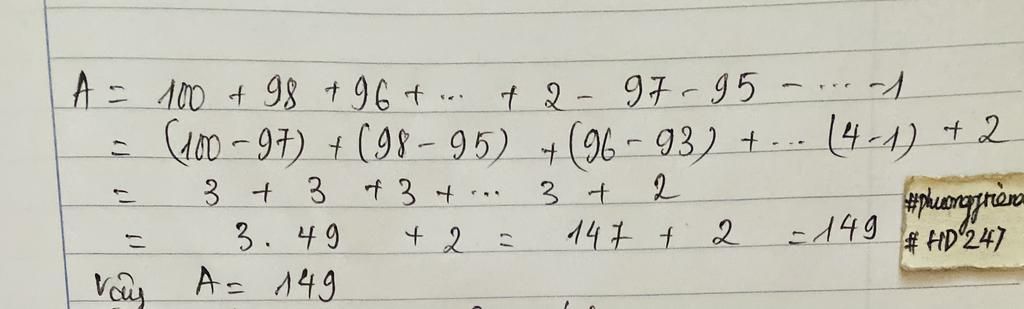 A = 100 + 98 + 96 + ... + 2 - 97 - 95 - ... - 1
= (100 - 97) + (98 - 95) + (96 - 93) + ... (4 - 1) + 2
= 3 + 3 + 3 + ... 3 + 2
= 3 . 49 + 2 = 147 + 2 = 149
Vậy A = 149
# HD 247